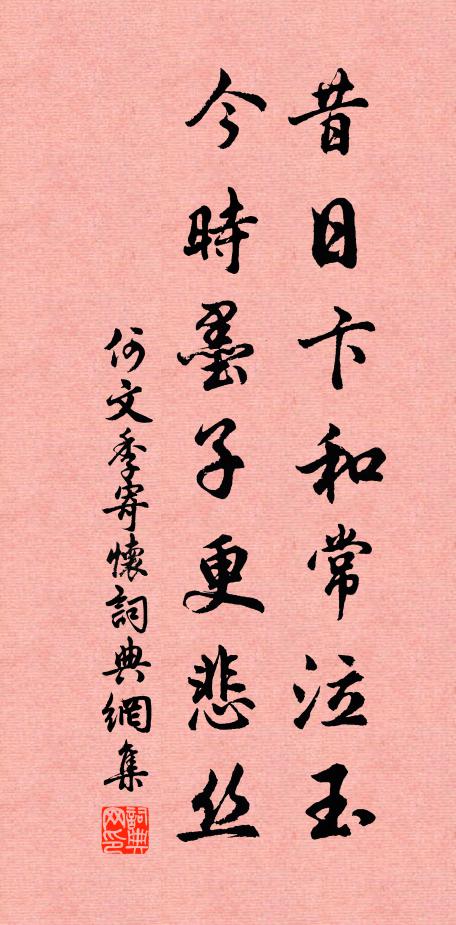 昔日卞和常泣玉
今時墨子更悲丝
何文季寄懷詞典網集
詞典网印